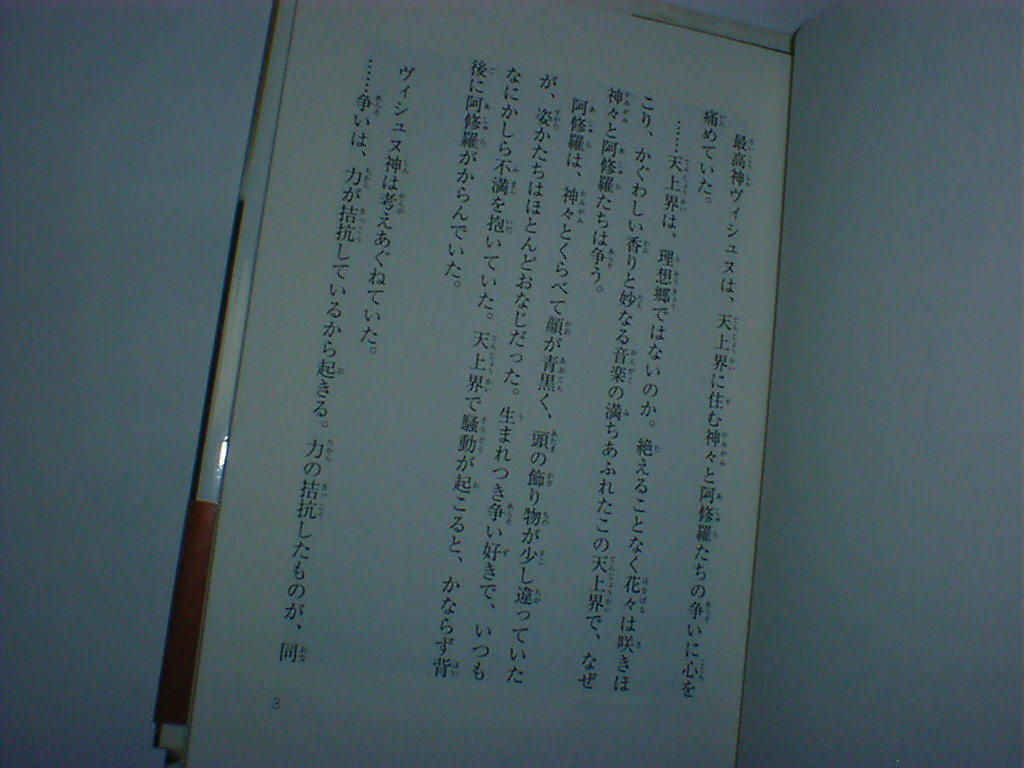 最高神ヴィシュヌは、天上界に住む神々と阿修羅たちの争いに心を
痛めていた。
……天上界は、理想郷ではないのか。絶えることなく花々は咲きほ
こり、かぐわしい香りと妙なる音楽の満ちあふれたこの天上界で、なぜ
神々と阿修羅たちは争う。
阿修羅は、神々とくらべて顔が青黒く、頭の飾り物が少し違っていた
が、姿かたちはほとんどおなじだった。生まれつき争い好きで、いつも
なにかしら不満を抱いていた。天上界で騒動が起こると、かならず背
後に阿修羅がからんでいた。
ヴィシュヌ神は考えあぐねていた。
……争いは、力が拮抗しているから起きる。力の拮抗したものが、同
3